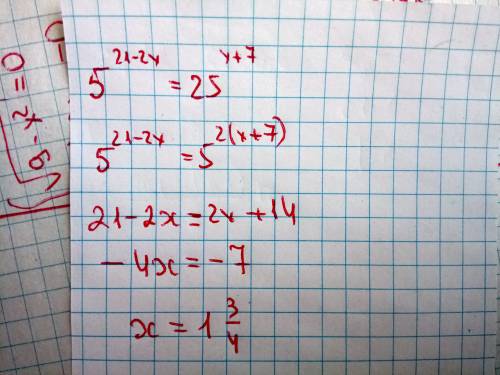 5^{21-2x} = 25^{x+7}
5^{21-2x} = 5^{2(x+7)}
21-2x = 2x + 14
- 4x = - 7
x = 1 3/4
0 = 2x - 6